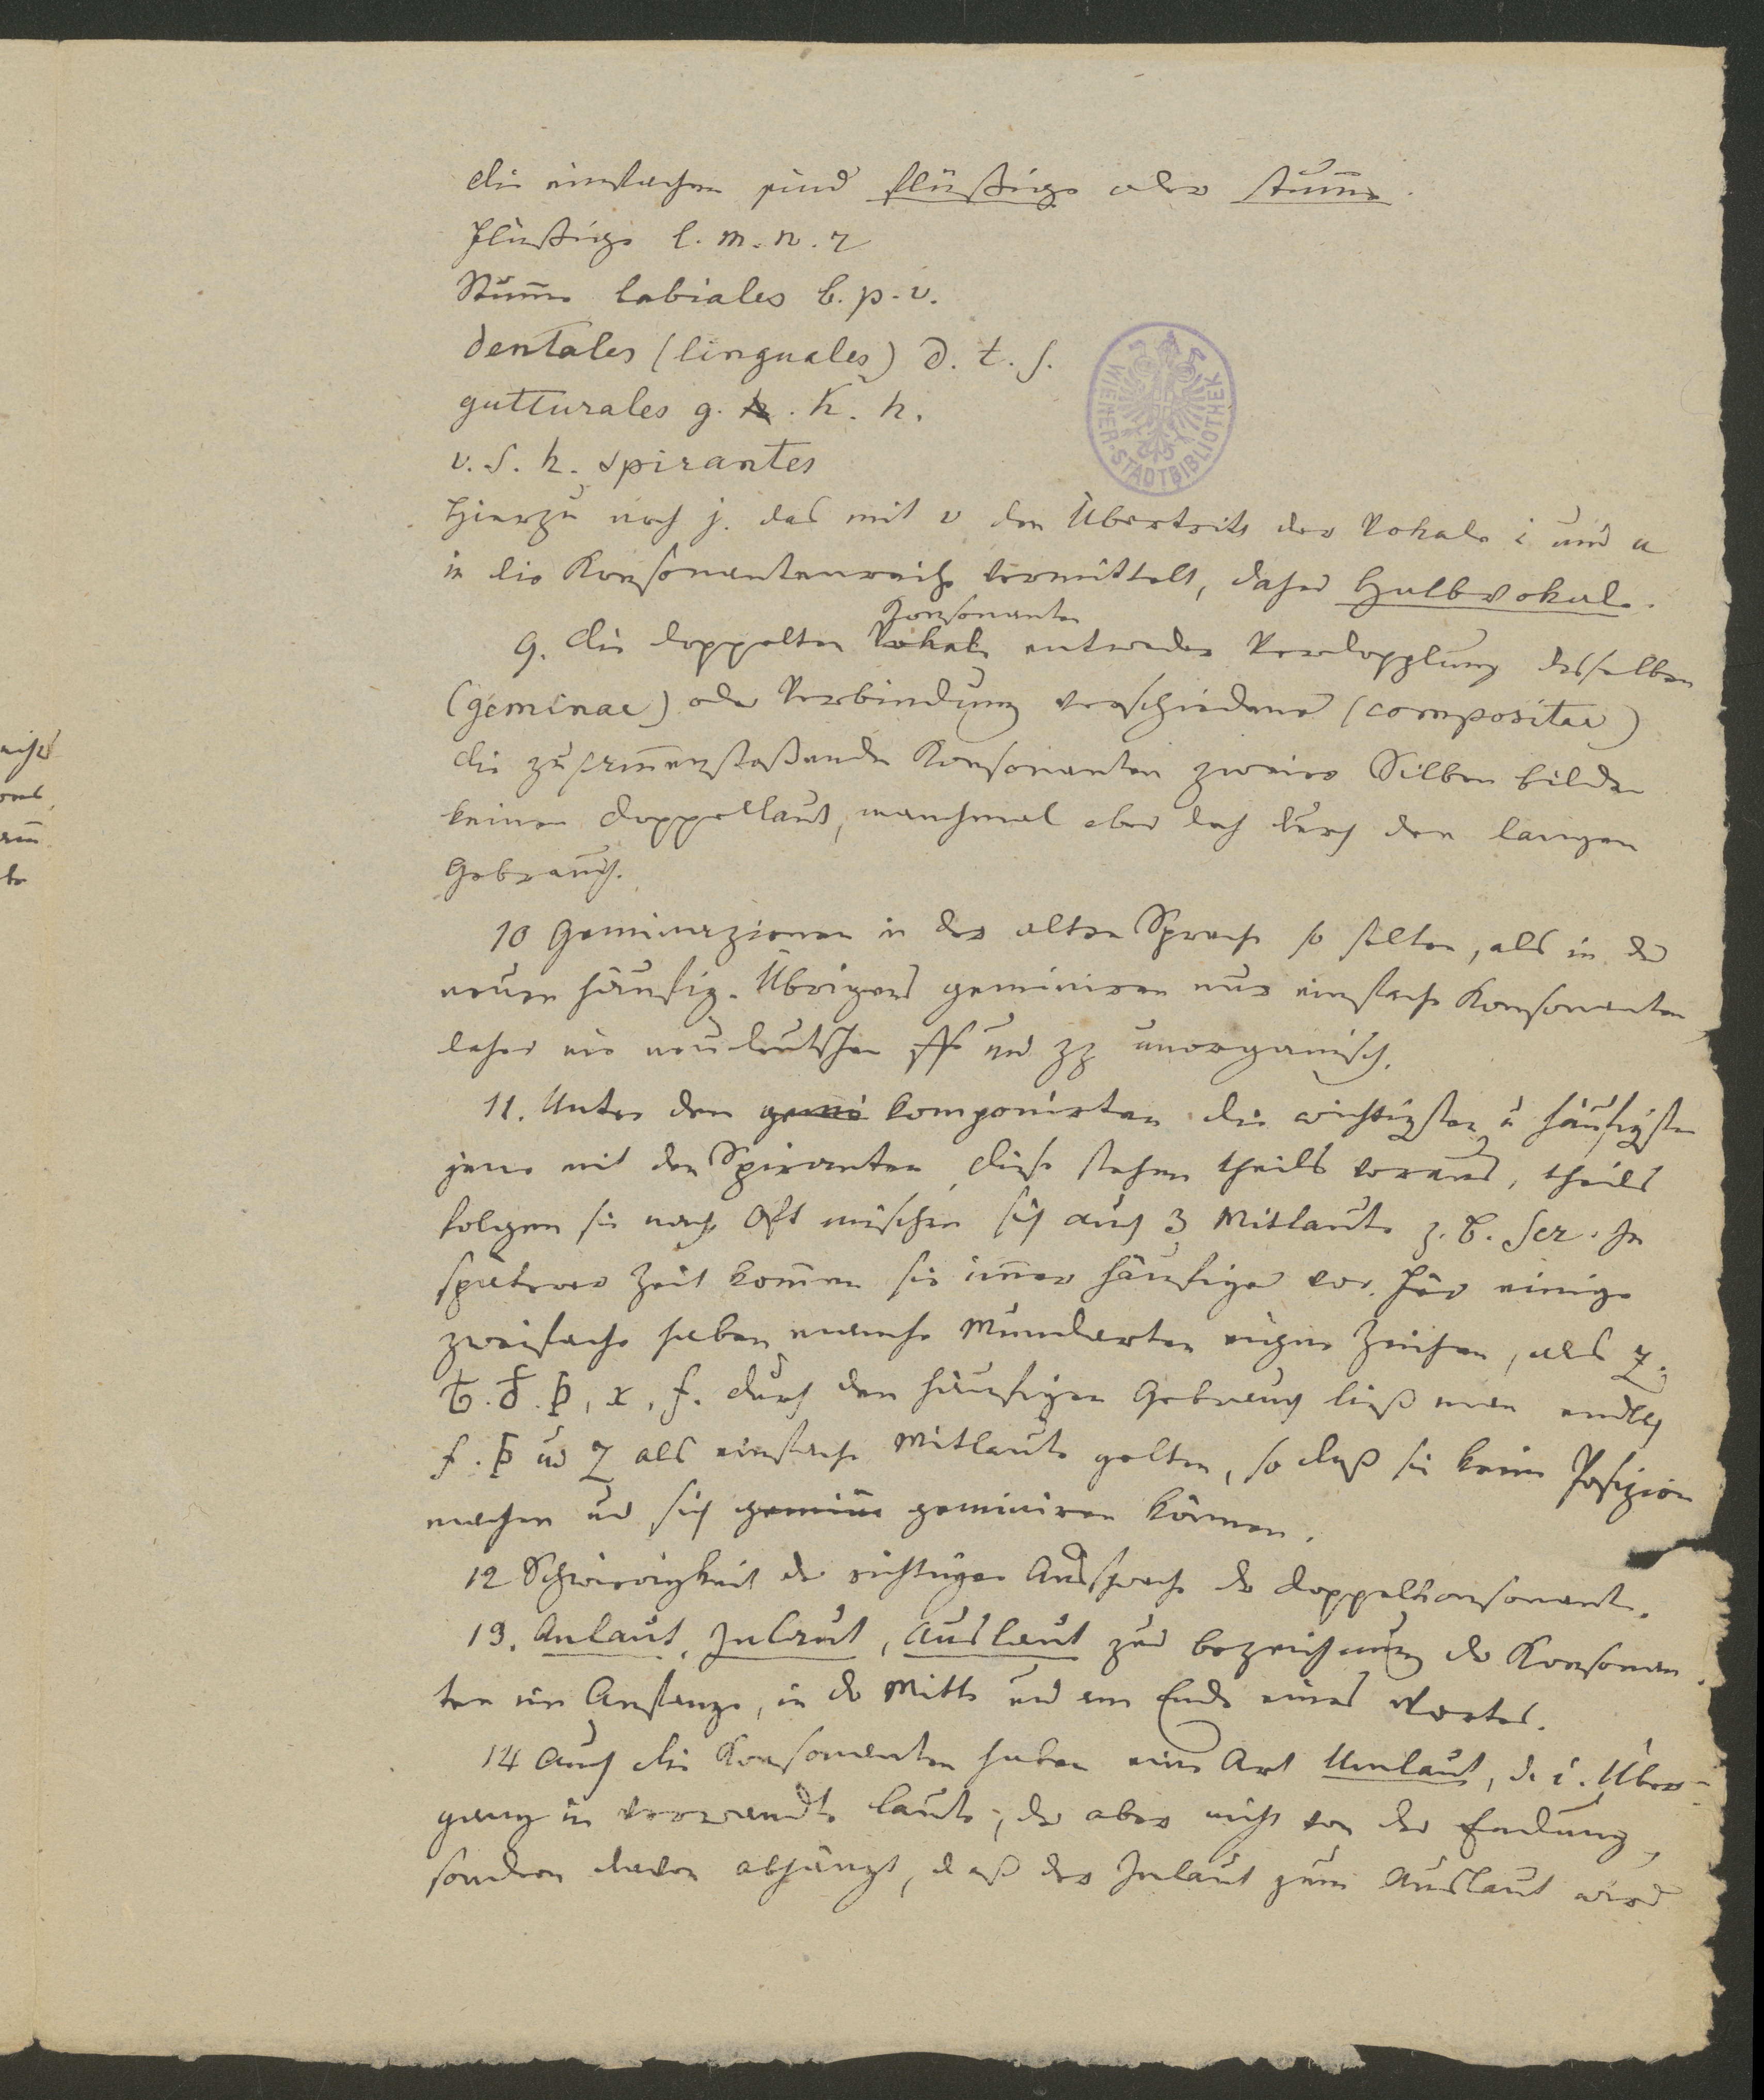 die einfachen sind flüßige oder stum̄e.
flüßige l. m. n. r
Stum̄e labiales b. p. v.
dentales (linguales) d. t. s.
gutturales g. h. k. h.
v. s. h. spirantes
hierzu noch j. das mit v den Übertritt der Vokale i und u
in die Konsonantenreihe vermittelt, daher Halbvokale.
Konsonanten
9. die doppelten Vokale entweder Verdopplung desselben
(geminae) oder Verbindung verschiedener (compositae)
die zusam̄enstoßenden Konsonanten zweier Silben bilden
keinen Doppellaut, manchmal aber doch durch den langen
Gebrauch.
10 Geminazionen in der alten Sprache so selten, als in der
neuen häufig. Übrigens geminiren nur einfache Konsonanten
daher die neudeutschen ff und zz unorganisch.
11. Unter den gemi komponirten die wichtigsten u häufigsten
jene mit den Spiranten, diese stehen theils voraus, theils
folgen sie nach. Oft mischen sich auch 3 Mitlaute z. B. scr. In
späterer Zeit kom̄en sie im̄er häufiger vor. Für einige
zweifache haben manche Mundarten eigne Zeichen, als z.
ƀ. đ. þ, x, f. durch den häufigen Gebrauch ließ man endlich
f. þ und z als einfache Mitlaute gelten, so daß sie keine Posizion
machen und sich gemin geminiren können.
12 Schwierigkeit der richtigen Aussprache der Doppelkonsonante.
13. Anlaut, Inlaut, Auslaut zur bezeichnung der Konsonan
ten im Anfange, in der Mitte und am Ende eines Wortes.
14 Auch die Konsonanten haben eine Art Umlaut, d. i. Über-
gang in verwandte laute; der aber nicht von der Endung,
sondern davon abhängt, daß der Inlaut zum Auslaut wird
WIENER STADTBIBLIOTHEK